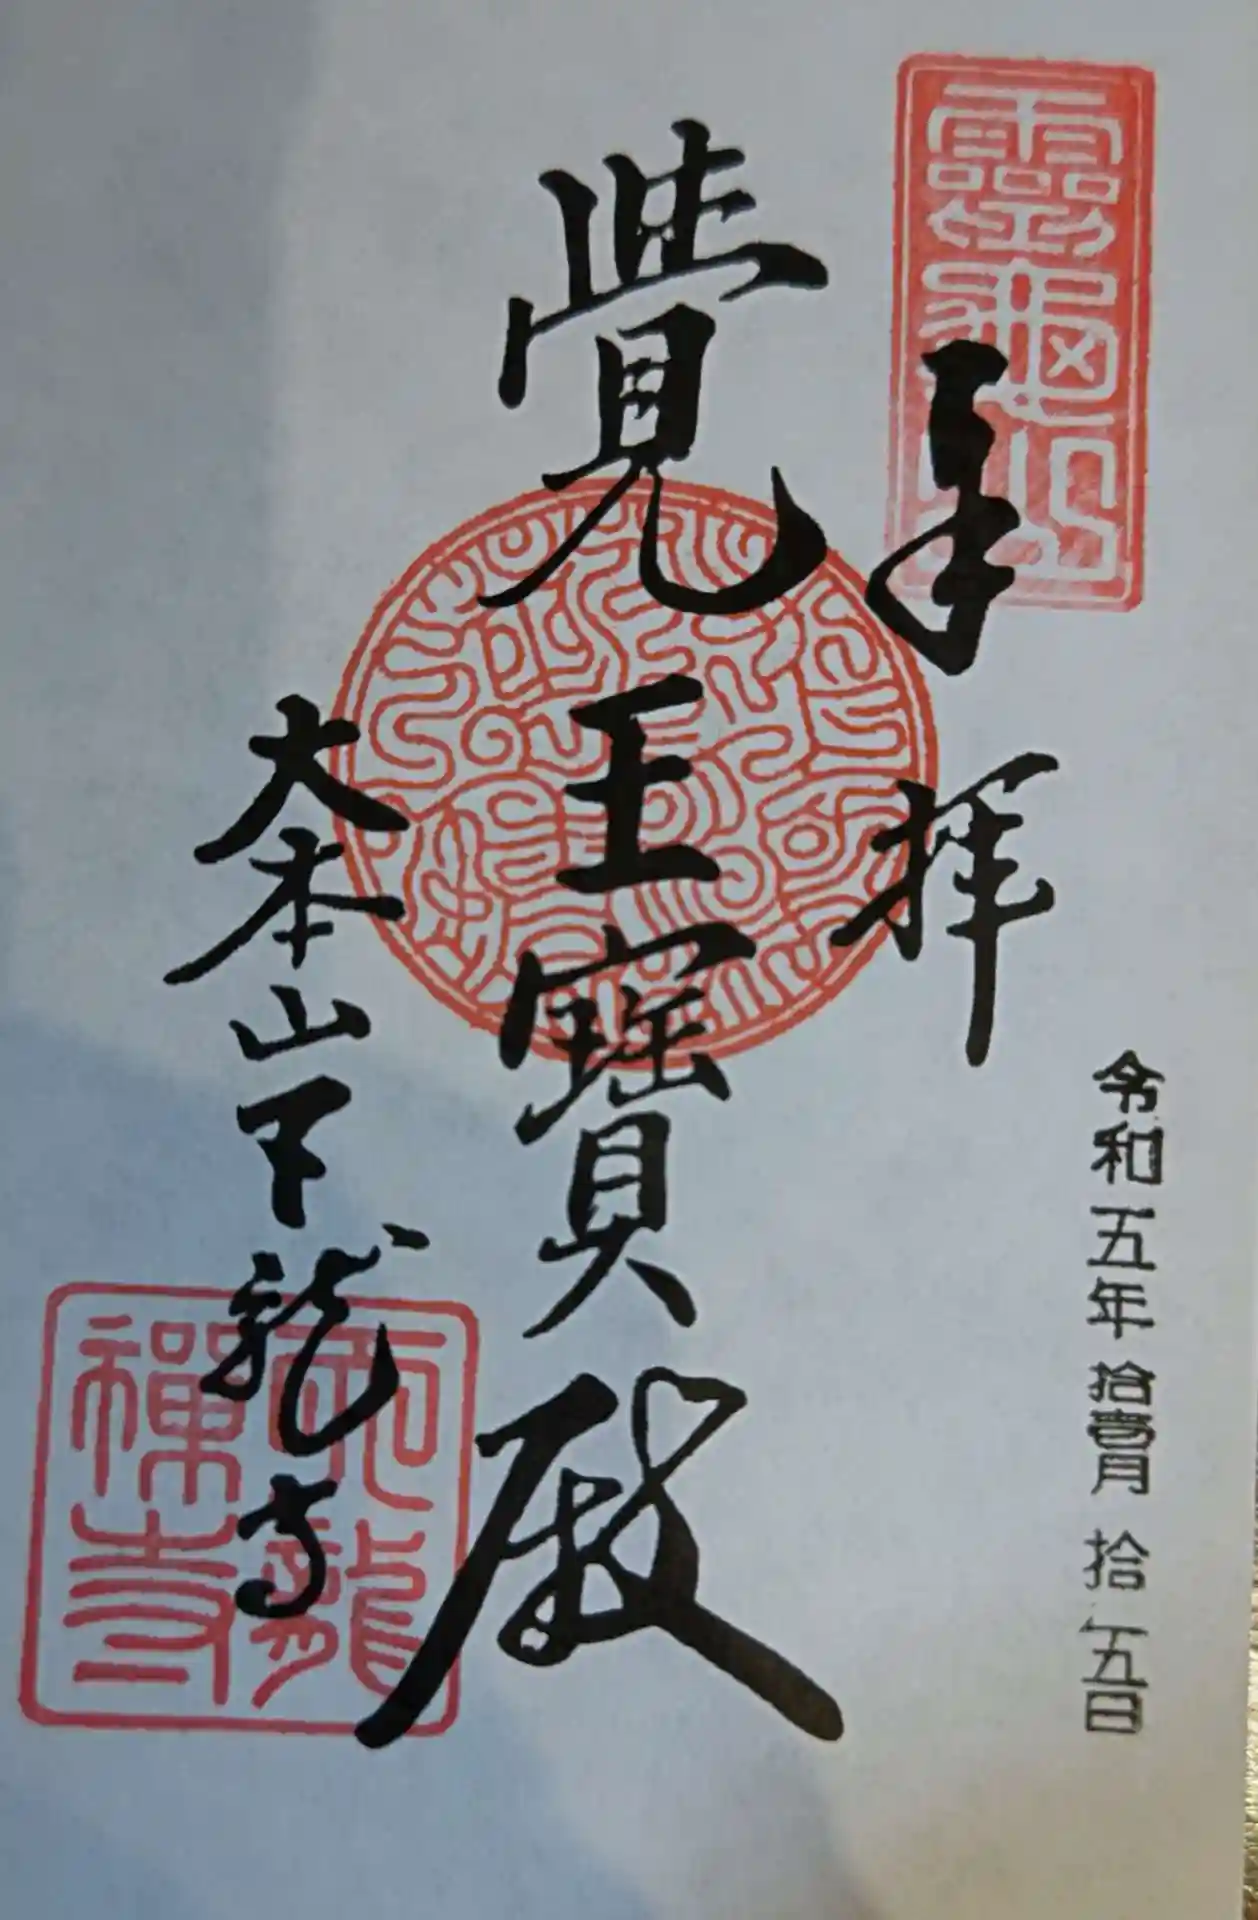 靈龜山
奉拝
令和五年拾壹月拾五日
覺王寶殿
大本山天龍寺
天龍
禅寺